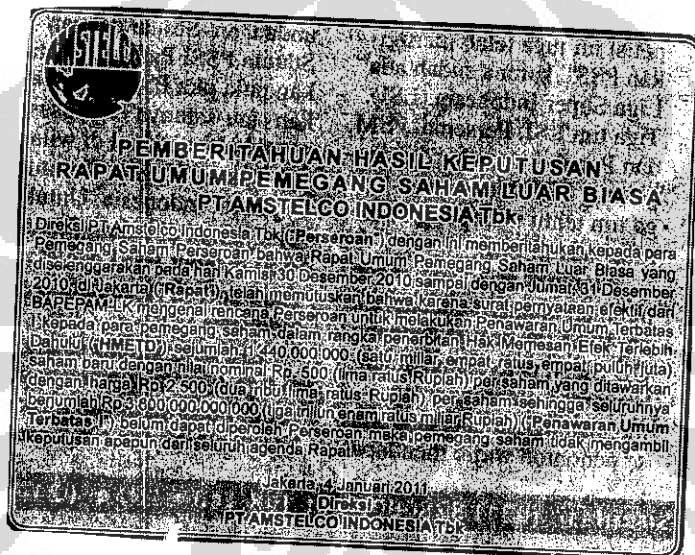 AMSTELCO
PEMBERITAHUAN HASIL KEPUTUSAN
RAPAT UMUM PEMEGANG SAHAM LUAR BIASA
PT AMSTELCO INDONESIA Tbk
Direksi PT Amstelco Indonesia Tbk ("Perseroan") dengan ini memberitahukan kepada para
Pemegang Saham Perseroan bahwa Rapat Umum Pemegang Saham Luar Biasa yang
diselenggarakan pada hari Kamis 30 Desember 2010 sampai dengan Jumat, 31 Desember
2010, di Jakarta ("Rapat"), telah memutuskan bahwa karena surat pernyataan efektif dari
BAPEPAM-LK mengenai rencana Perseroan untuk melakukan Penawaran Umum Terbatas
I kepada para pemegang saham dalam rangka penerbitan Hak Memesan Efek Terlebih
Dahulu ("HMETD") sejumlah 1.440.000.000 (satu miliar empat ratus empat puluh juta)
saham baru dengan nilai nominal Rp. 500 (lima ratus Rupiah) per saham yang ditawarkan
dengan harga Rp. 2.500 (dua ribu lima ratus Rupiah) per saham sehingga seluruhnya
berjumlah Rp 3.600.000.000.000 (tiga triliun enam ratus miliar Rupiah) ("Penawaran Umum
Terbatas I") belum dapat diperoleh Perseroan maka pemegang saham tidak mengambil
keputusan apapun dari seluruh agenda Rapat
Jakarta, 4 Januari 2011
Direksi
PT AMSTELCO INDONESIA Tbk